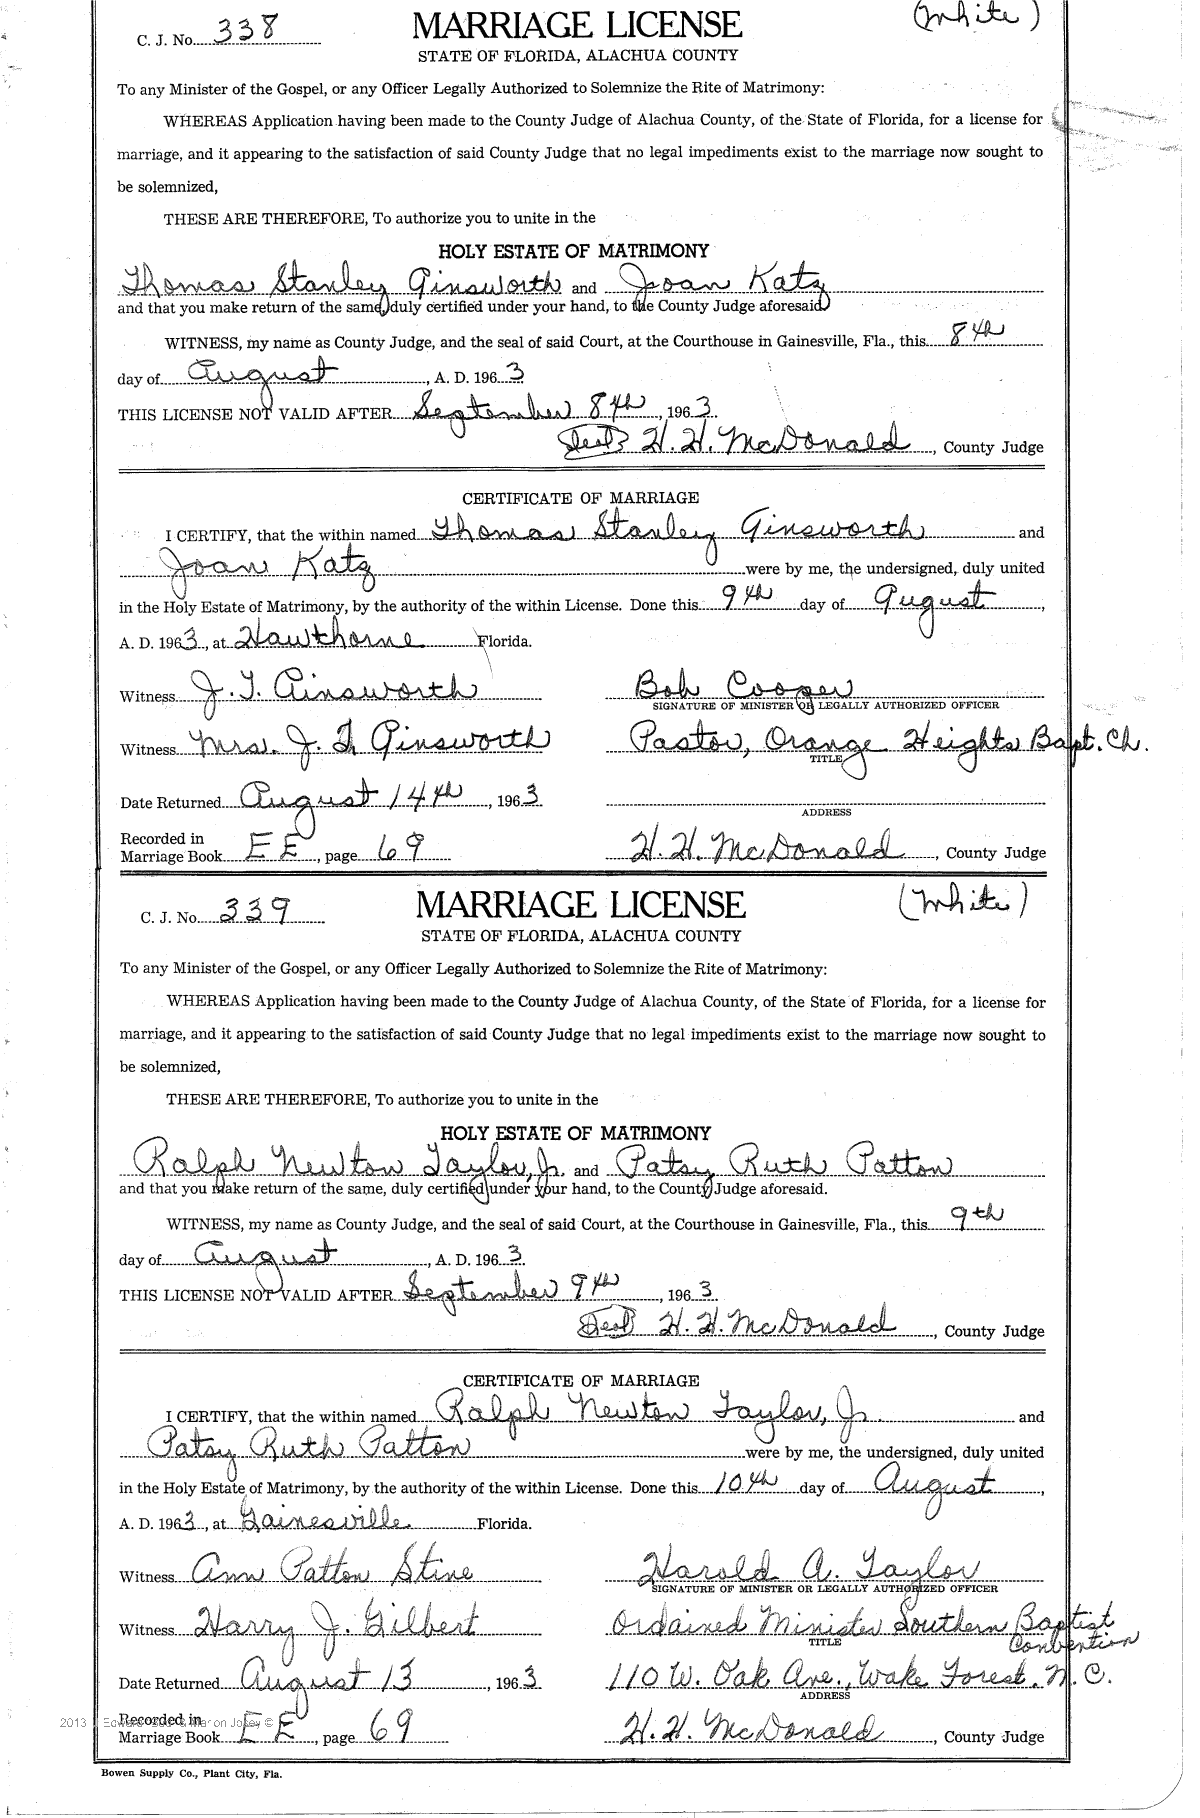 C. J. No. 338 MARRIAGE LICENSE (White)
STATE OF FLORIDA, ALACHUA COUNTY
To any Minister of the Gospel, or any Officer Legally Authorized to Solemnize the Rite of Matrimony:
WHEREAS Application having been made to the County Judge of Alachua County, of the State of Florida, for a license for
marriage, and it appearing to the satisfaction of said County Judge that no legal impediments exist to the marriage now sought to
be solemnized,
THESE ARE THEREFORE, To authorize you to unite in the
HOLY ESTATE OF MATRIMONY
Thomas Stanley Ainsworth and Joan Katz
and that you make return of the same, duly certified under your hand, to the County Judge aforesaid.
WITNESS, my name as County Judge, and the seal of said Court, at the Courthouse in Gainesville, Fla., this 8th
day of August, A. D. 1963
THIS LICENSE NOT VALID AFTER September 8th, 1963
(Seal) H. H. McDonald, County Judge
CERTIFICATE OF MARRIAGE
I CERTIFY, that the within named Thomas Stanley Ainsworth and
Joan Katz were by me, the undersigned, duly united
in the Holy Estate of Matrimony, by the authority of the within License. Done this 9th day of August,
A. D. 1963, at Hawthorne Florida.
Witness J. T. Ainsworth Bob Cooper
SIGNATURE OF MINISTER OR LEGALLY AUTHORIZED OFFICER
Witness Mrs. J. T. Ainsworth Pastor, Orange Heights Bapt. Ch.
TITLE
Date Returned August 14th, 1963
ADDRESS
Recorded in
Marriage Book EE, page 69 H. H. McDonald, County Judge
C. J. No. 339 MARRIAGE LICENSE (White)
STATE OF FLORIDA, ALACHUA COUNTY
To any Minister of the Gospel, or any Officer Legally Authorized to Solemnize the Rite of Matrimony:
WHEREAS Application having been made to the County Judge of Alachua County, of the State of Florida, for a license for
marriage, and it appearing to the satisfaction of said County Judge that no legal impediments exist to the marriage now sought to
be solemnized,
THESE ARE THEREFORE, To authorize you to unite in the
HOLY ESTATE OF MATRIMONY
Ralph Newton Taylor, Jr. and Patsy Ruth Patton
and that you make return of the same, duly certified under your hand, to the County Judge aforesaid.
WITNESS, my name as County Judge, and the seal of said Court, at the Courthouse in Gainesville, Fla., this 9th
day of August, A. D. 1963
THIS LICENSE NOT VALID AFTER September 9th, 1963
(Seal) H. H. McDonald, County Judge
CERTIFICATE OF MARRIAGE
I CERTIFY, that the within named Ralph Newton Taylor, Jr. and
Patsy Ruth Patton were by me, the undersigned, duly united
in the Holy Estate of Matrimony, by the authority of the within License. Done this 10th day of August,
A. D. 1963, at Gainesville Florida.
Witness Ann Patton Stine Harold A. Taylor
SIGNATURE OF MINISTER OR LEGALLY AUTHORIZED OFFICER
Witness Harry J. Gilbert Ordained Minister Southern Baptist
TITLE Convention
Date Returned August 13, 1963 110 W. Oak Ave., Wake Forest, N. C.
ADDRESS
2013 Recorded in
Marriage Book EE, page 69 H. H. McDonald, County Judge
Bowen Supply Co., Plant City, Fla.